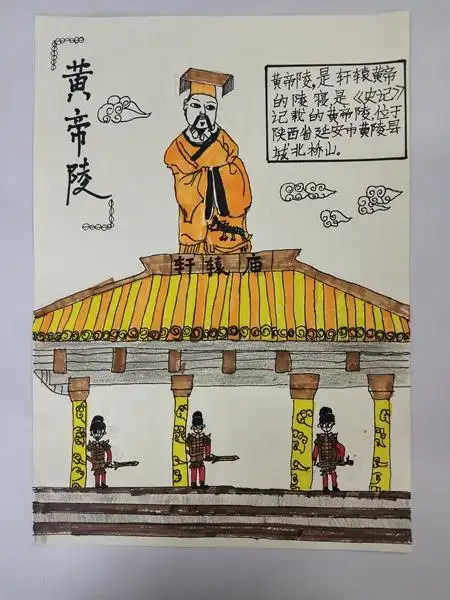 黄帝陵
黄帝陵,是轩辕黄帝
的陵寝,是《史记》
记载的黄帝陵.位于
陕西省延安市黄陵县
城北桥山。
轩辕庙